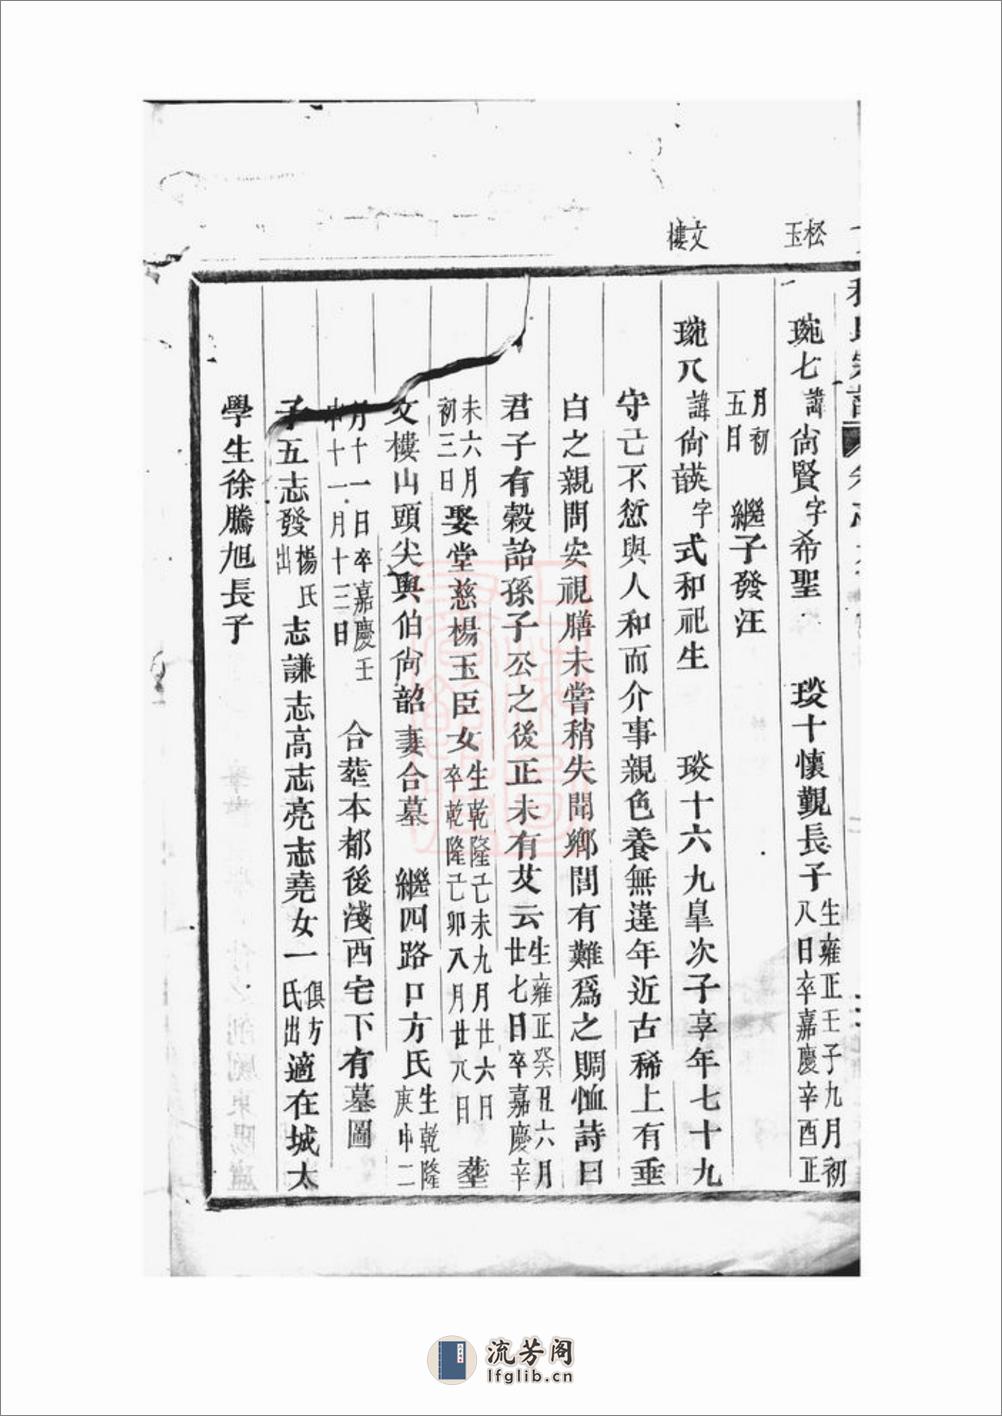 松玉
文樓
琬七諱尙賢字希聖 琰十懷觀長子生雍正壬子九月初八日卒嘉慶辛酉正
月初五日 繼子發汪
琬八諱尙韺字式和祀生 琰十六九臯次子享年七十九
守己不愆與人和而介事親色養無違年近古稀上有垂
白之親問安視膳未嘗稍失閒鄉閭有難爲之賙恤詩曰
君子有穀詒孫子公之後正未有艾云生雍正癸丑六月廿七日卒嘉慶辛
未六月初三日娶堂慈楊玉臣女生乾隆己未九月廿六日卒乾隆己卯八月廿八日 塟
文樓山頭尖與伯尙韶妻合墓 繼四路口方氏生乾隆庚申二
月十一日卒嘉慶壬申十一月十三日 合塟本都後淺西宅下有墓圖
子五志發楊氏出志謙志高志亮志堯女一俱方氏出適在城太
學生徐騰旭長子
流芳阁
lfglib.cn